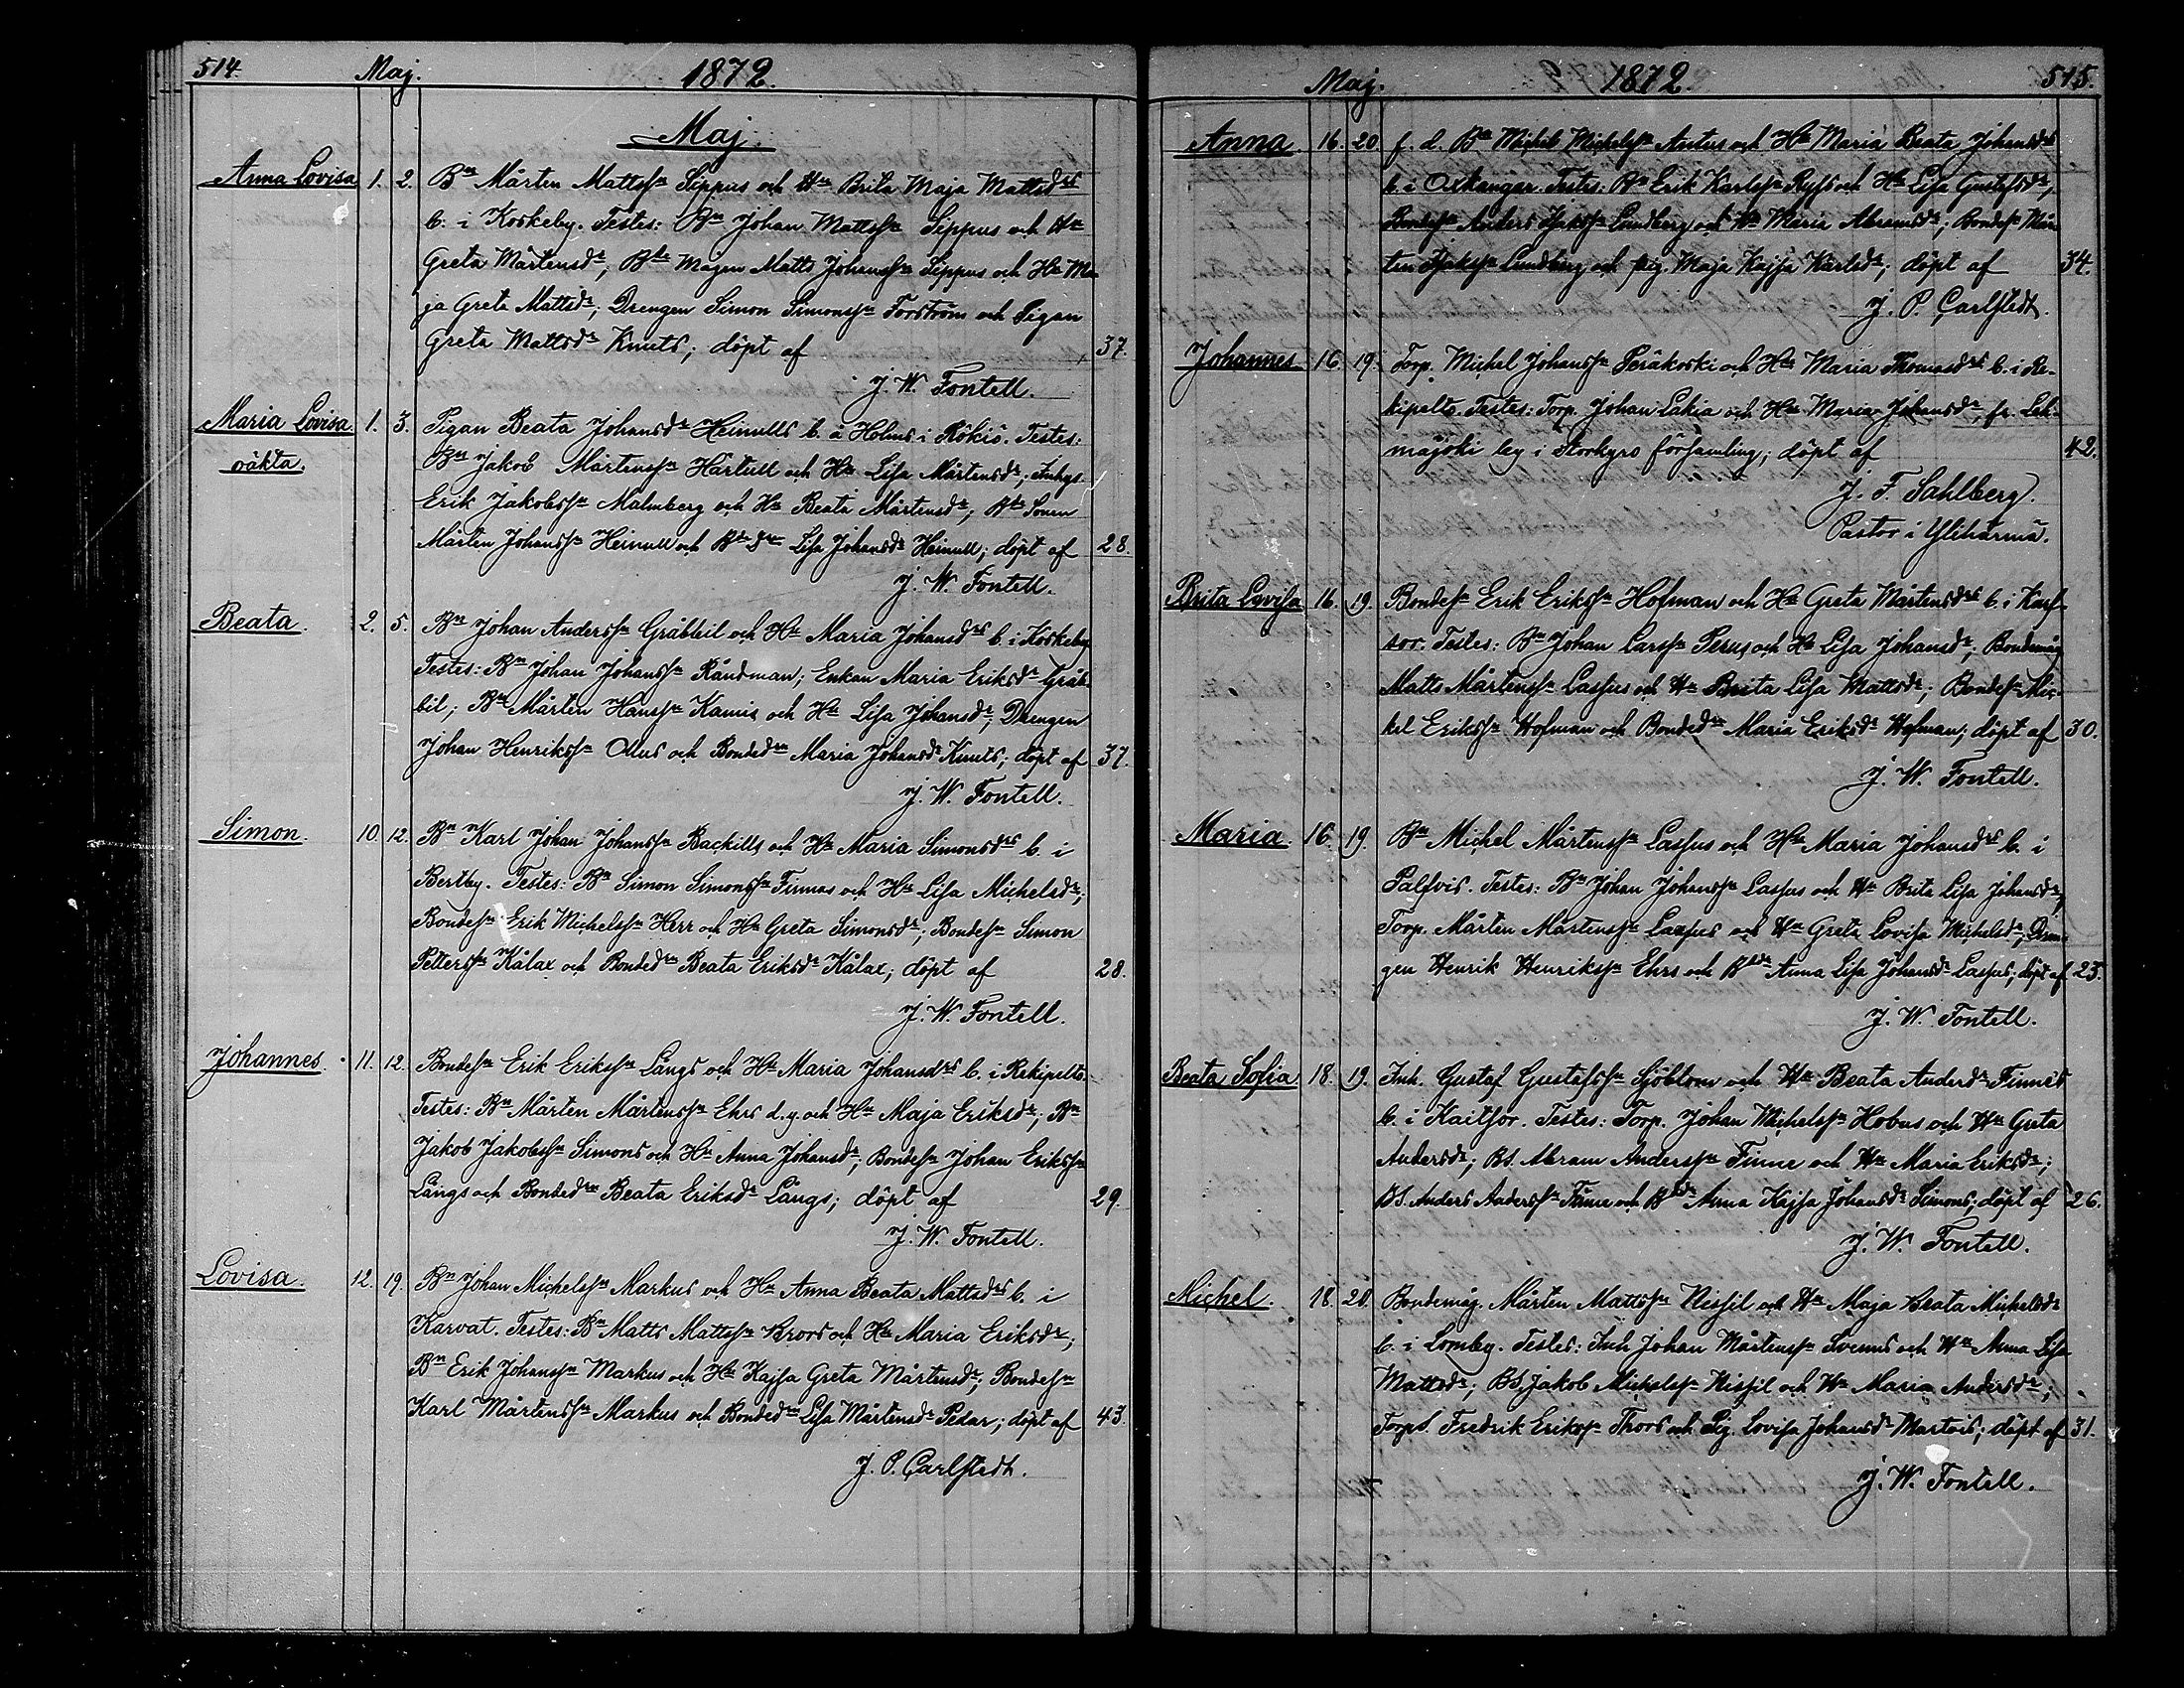 514. Maj. 1872.
Maj.
Anna Lovisa 1. 2. Bn Mårten Mattssn Sippus och Hu Brita Maja Mattsdrs
b. i Koskeby. Testes: Bn Johan Mattssn Sippus och Hu
Greta Mårtensdr; Bde Mågen Matts Johanssn Sippus och Hu Ma
ja Greta Mattsdr; Drengen Simon Simonssn Forström och Pigan
Greta Mattsdr Knuts; döpt af 37.
J. W. Fontell.
Maria Lovisa 1. 3. Pigan Beata Johansdr Heinulls b. å Holms i Rökiö. Testes:
oäkta. Bn Jakob Mårtenssn Härtull och Hu Lisa Mårtensdr; Inhys.
Erik Jakobssn Malmberg och Hu Beata Mårtensdr; Bde Sonen
Mårten Johanssn Heinull och Bde dn Lisa Johansdr Heinull; döpt af 28.
J. W. Fontell.
Beata. 2. 5. Bn Johan Anderssn Gräbbil och Hu Maria Johansdrs b. i Koskeby
Testes: Bn Johan Johanssn Råndman; Enkan Maria Eriksdr Gräb-
bil; Bn Mårten Hanssn Kamis och Hu Lisa Johansdr; Drengen
Johan Henrikssn Olus och Bondedrn Maria Johansdr Knuts; döpt af 37.
J. W. Fontell.
Simon. 10. 12. Bn Karl Johan Johanssn Backills och Hu Maria Simonsdrs b. i
Bertby. Testes: Bn Simon Simonssn Finnas och Hu Lisa Michelsdr;
Bondesn Erik Michelssn Herr och Hu Greta Simonsdr; Bondesn Simon
Petterssn Kålax och Bondedrn Beata Eriksdr Kålax; döpt af 28.
J. W. Fontell.
Johannes. 11. 12. Bondesn Erik Erikssn Långs och Hu Maria Johansdrs b. i Rekipelto.
Testes: Bn Mårten Mårtenssn Ehrs d. y. och Hu Maja Eriksdr; Bn
Jakob Jakobssn Simons och Hu Anna Johansdr; Bondesn Johan Erikssn
Långs och Bondedrn Beata Eriksdr Långs; döpt af 29.
J. W. Fontell.
Lovisa. 12. 19. Bn Johan Michelssn Markus och Hu Anna Beata Mattsdrs b. i
Karvat. Testes: Bn Matts Mattssn Brors och Hu Maria Eriksdr;
Bn Erik Johanssn Markus och Hu Kajsa Greta Mårtensdr; Bondesn
Karl Mårtenssn Markus och Bondedrn Lisa Mårtensdr Pedar; döpt af 43.
J. P. Carlstedt.
Maj. 1872. 515.
Anna 16. 20. f. d. Bn Michel Michelssn Antus och Hu Maria Beata Johansdrs
b. i Oxkangar. Testes: Bn Erik Karlssn Ryss och Hu Lisa Gustafsdr;
Bondesn Anders Lundberg och Hu Maria Abramsdr; Bondesn Mår-
ten Lundberg och pig. Maja Kajsa Karlsdr; döpt af 34.
J. P. Carlstedt.
Johannes 16. 19. Torp. Michel Johanssn Peräkoski och Hu Maria Thomasdrs b. i Re-
kipelto. Testes: Torp. Johan Lakia och Hu Maria Johansdr, fr. Leh-
mäjoki by i Storkyro församling; döpt af 42.
J. F. Sahlberg.
Pastor i Ylihärmä.
Brita Lovisa 16. 19. Bondesn Erik Erikssn Hofman och Hu Greta Mårtensdrs b. i Karf-
sor. Testes: Bn Johan Larssn Perus och Hu Lisa Johansdr; Bondemåg
Matts Mårtenssn Lassus och Hu Brita Lisa Mattsdr; Bondesn Mic-
kel Erikssn Hofman och Bondedrn Maria Eriksdr Hofman; döpt af 30.
J. W. Fontell.
Maria. 16. 19. Bn Michel Mårtenssn Lassus och Hu Maria Johansdrs b. i
Palfvis. Testes: Bn Johan Johanssn Lassus och Hu Brita Lisa Johansdr;
Torp. Mårten Mårtenssn Lassus och Hu Greta Lovisa Michelsdr; Dren-
gen Henrik Henrikssn Ehrs och Bdr Anna Lisa Johansdr Lassus; döpt af 25.
J. W. Fontell.
Beata Sofia 18. 19. Inh. Gustaf Gustafssn Sjöblom och Hu Beata Andersdr Finnes
b. i Kaitsor. Testes: Torp. Johan Michelssn Hobus och Hu Greta
Andersdr; BS. Abram Anderssn Finne och Hu Maria Eriksdr;
BS. Anders Anderssn Finne och Bdr Anna Kajsa Johansdr Simons; döpt af 26.
J. W. Fontell.
Michel. 18. 20. Bondemåg. Mårten Mattssn Nissil och Hu Maja Beata Michelsdr
b. i Lomby. Testes: Inh Johan Mårtenssn Svenns och Hu Anna Lisa
Mattsdr; BS. Jakob Michelssn Nissil och Hu Maria Andersdr;
TorpS. Fredrik Erikssn Thors och Pig. Lovisa Johansdr Martois; döpt af 31.
J. W. Fontell.